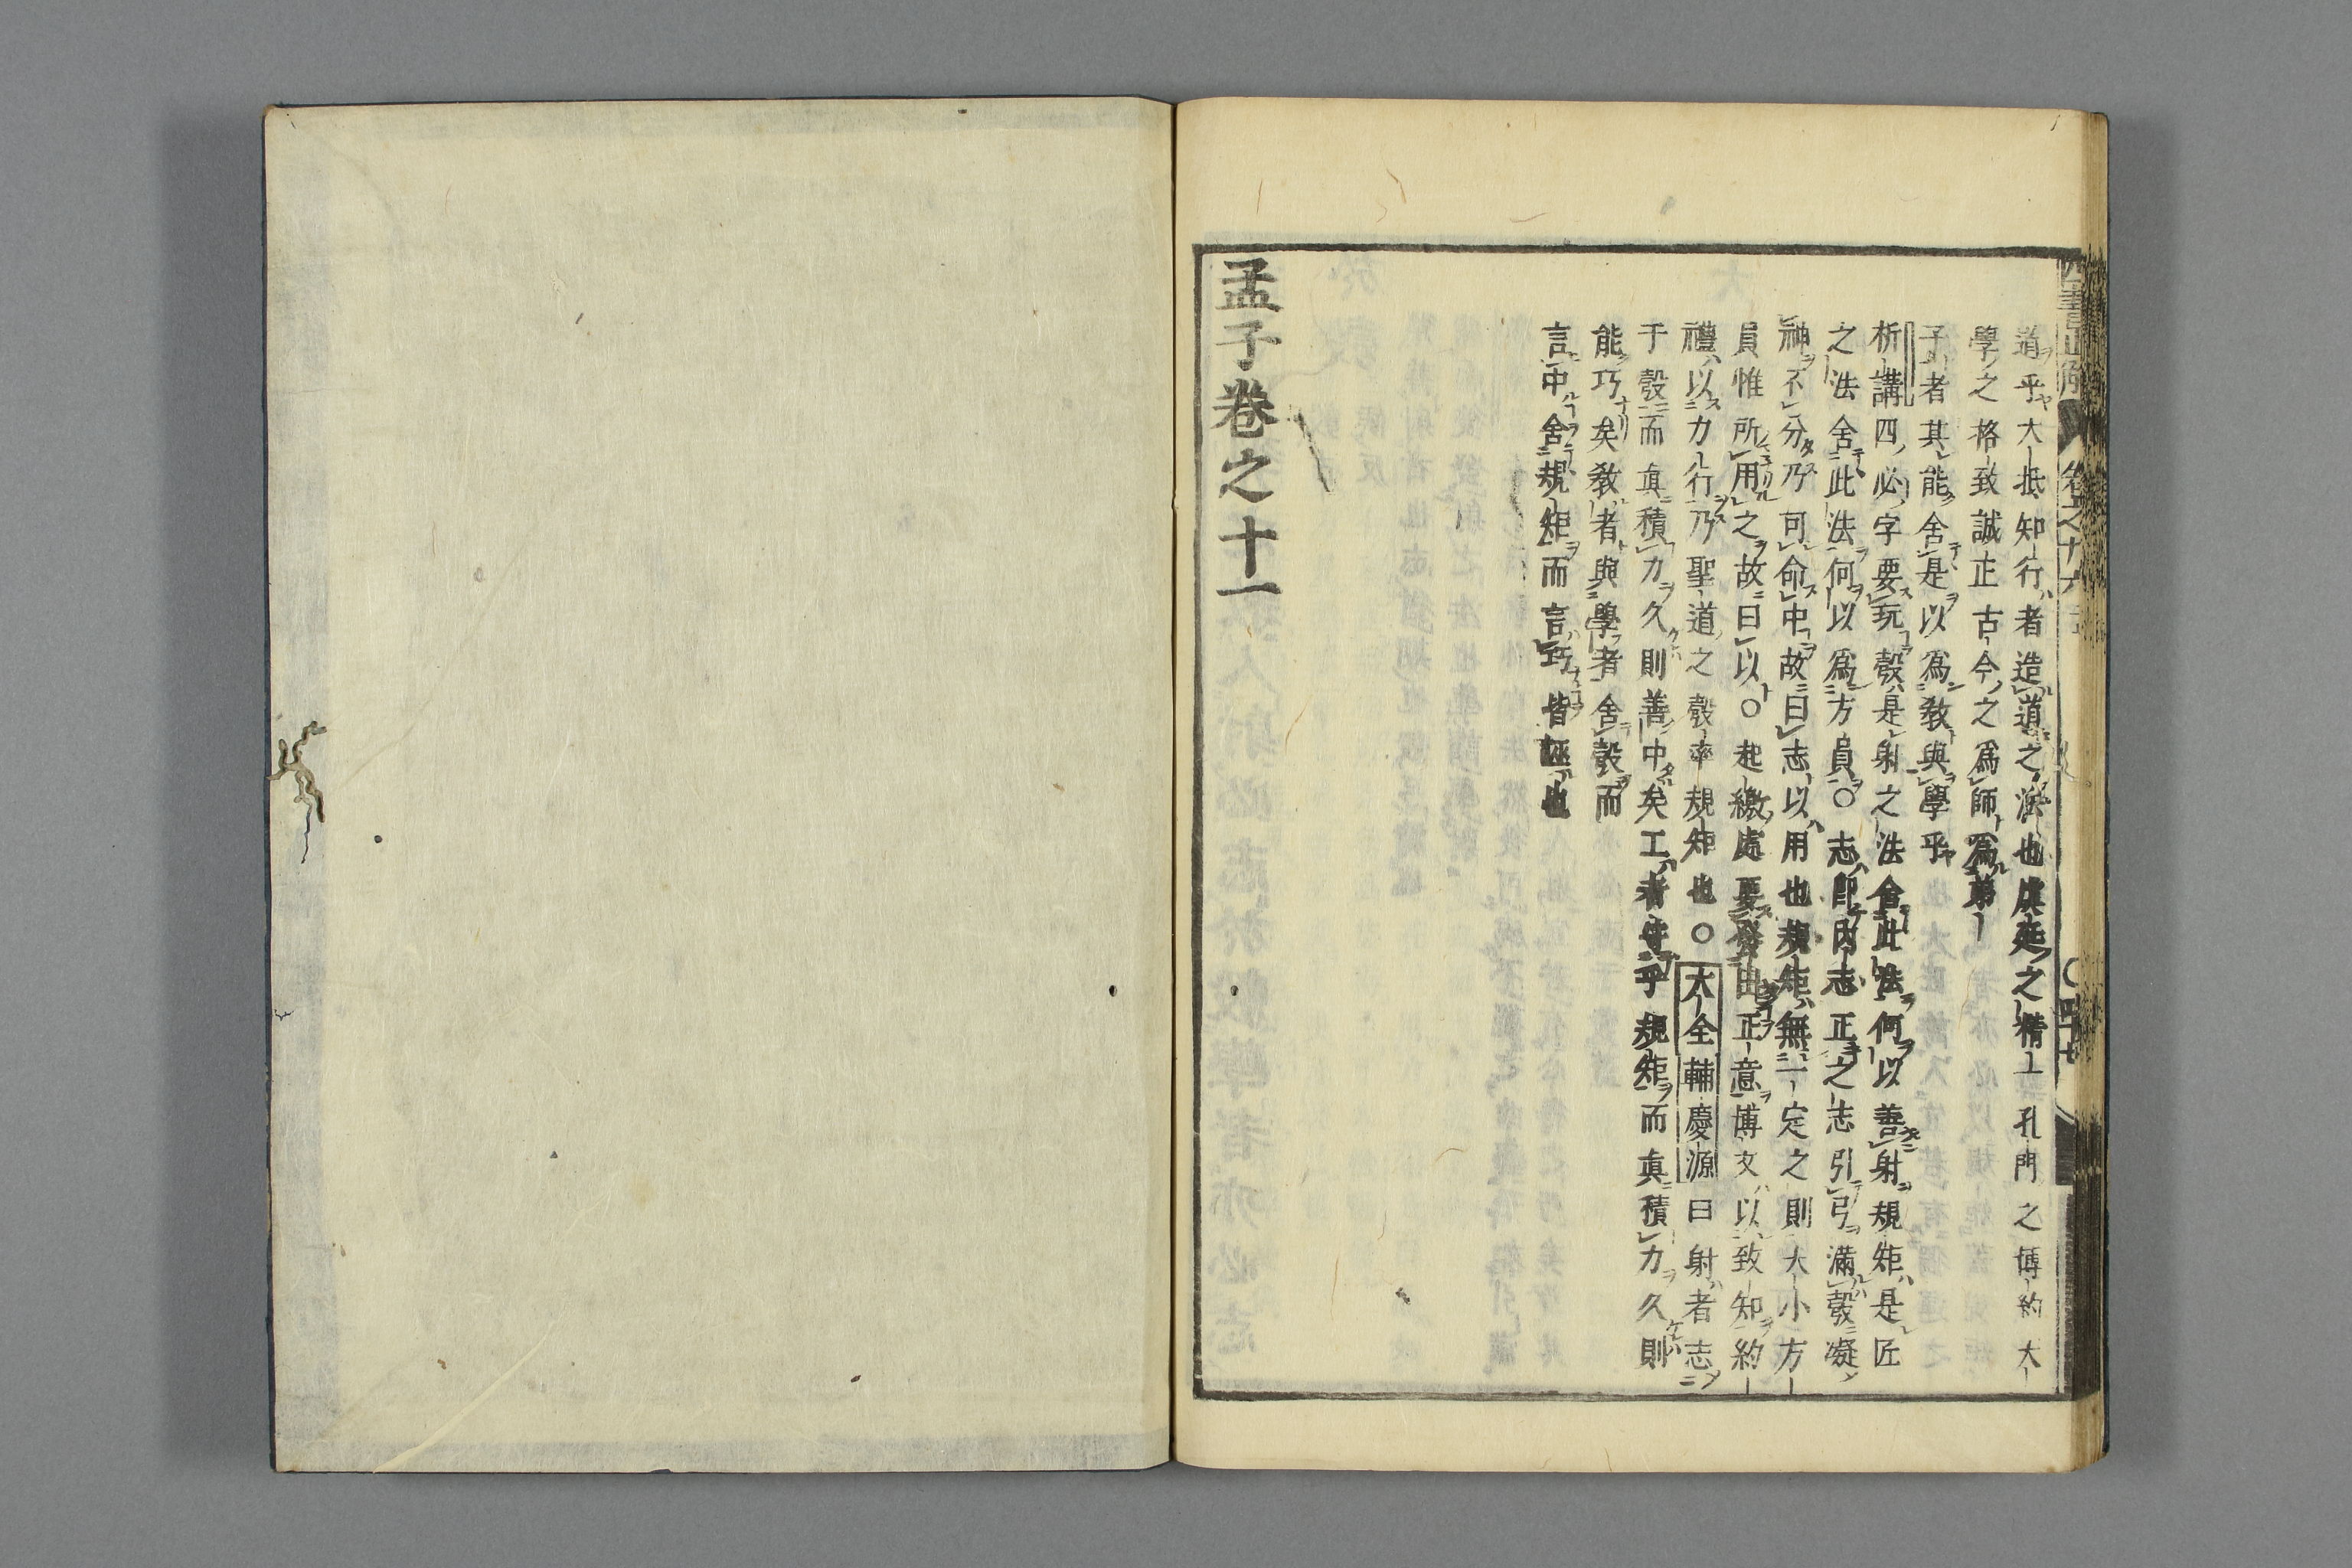 道乎大抵知行者造道之法也虞廷之精一孔門之博約大
學之格致誠正古今之爲師爲弟
子者其能舍是以爲教與學乎
析講四必字要玩彀是射之法舍此法何以善射規矩是匠
之法舍此法何以爲方員○志即内志正之志引弓滿彀凝
神不分乃可命中故曰志以用也規矩無一定之則大小方
員惟所用之故曰以○起繳處要發出正意博文以致知約
禮以力行乃聖道之彀率規矩也○大全輔慶源曰射者志
于彀而眞積力久則善中矣工者守乎規矩而眞積力久則
能巧矣教者與學者舍彀而
言中舍規矩而言巧皆誣也
孟子卷之十一
四書正解 卷之十六 四十七